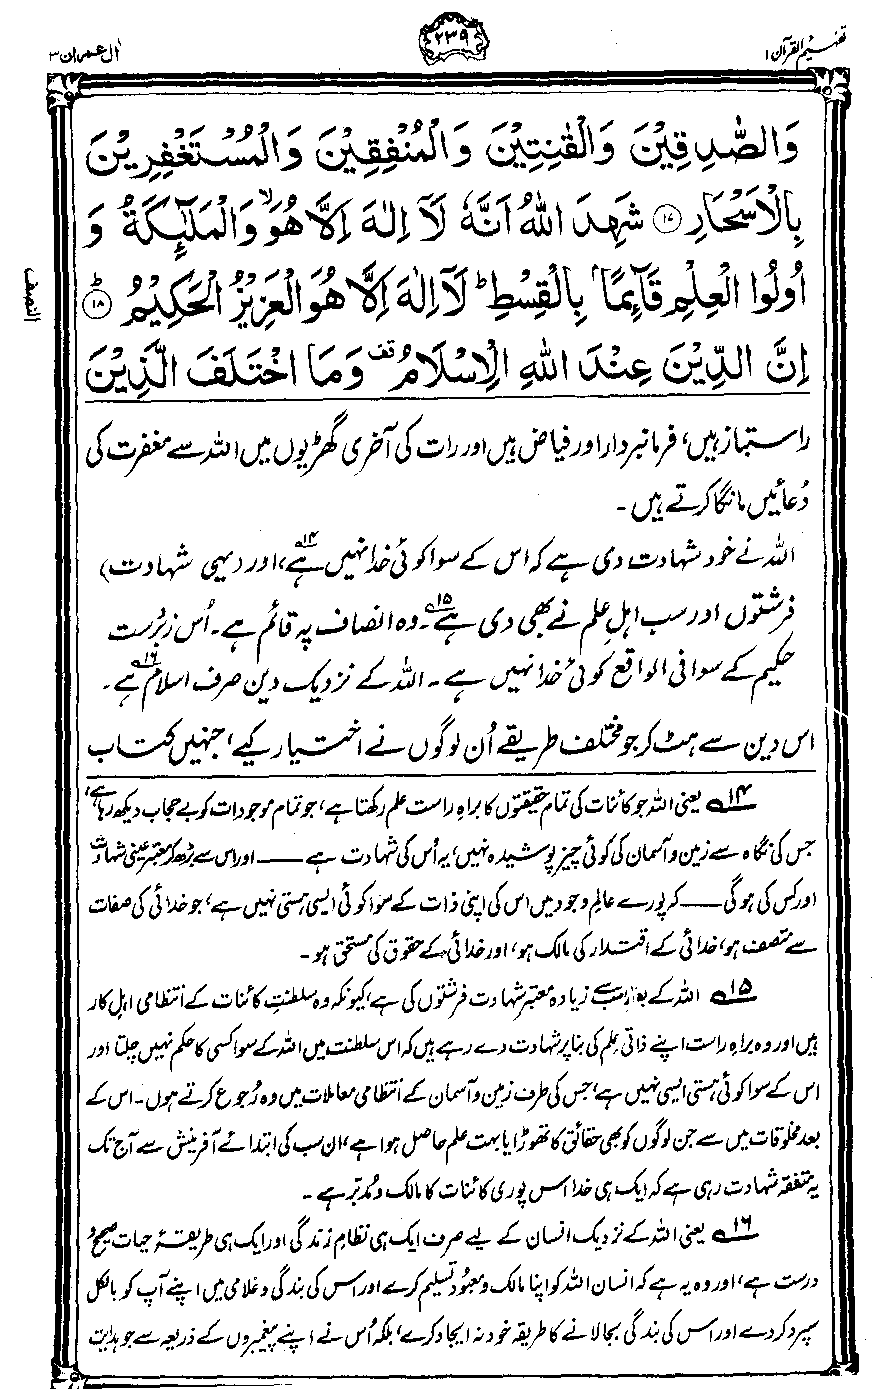 تفہیم القرآن ۱
۲۳۹
اٰل عمران ۳
وَالصّٰدِقِيْنَ وَالْقٰنِتِيْنَ وَالْمُنْفِقِيْنَ وَالْمُسْتَغْفِرِيْنَ
بِالْاَسْحَارِ ۝۱۷ شَهِدَ اللّٰهُ اَنَّهٗ لَآ اِلٰهَ اِلَّا هُوَ ۙ وَالْمَلٰٓئِكَةُ وَ
اُولُوا الْعِلْمِ قَآئِمًا ۢ بِالْقِسْطِ ؕ لَآ اِلٰهَ اِلَّا هُوَ الْعَزِيْزُ الْحَكِيْمُ ۝۱۸ؕ
النصف
اِنَّ الدِّيْنَ عِنْدَ اللّٰهِ الْاِسْلَامُ ۟ وَمَا اخْتَلَفَ الَّذِيْنَ
راستباز ہیں، فرمانبردار اور فیاض ہیں اور رات کی آخری گھڑیوں میں اللہ سے مغفرت کی
دُعائیں مانگا کرتے ہیں۔
اللہ نے خود شہادت دی ہے کہ اس کے سوا کوئی خدا نہیں ہے ۱۴، اور (یہی شہادت)
فرشتوں اور سب اہلِ علم نے بھی دی ہے ۱۵۔ وہ انصاف پر قائم ہے۔ اُس زبردست
حکیم کے سوا فی الواقع کوئی خدا نہیں ہے۔ اللہ کے نزدیک دین صرف اسلام ۱۶ ہے۔
اس دین سے ہٹ کر جو مختلف طریقے اُن لوگوں نے اختیار کیے، جنہیں کتاب
۱۴ یعنی اللہ جو کائنات کی تمام حقیقتوں کا براہِ راست علم رکھتا ہے، جو تمام موجودات کو بے حجاب دیکھ رہا ہے،
جس کی نگاہ سے زمین و آسمان کی کوئی چیز پوشیدہ نہیں، یہ اُس کی شہادت ہے —— اور اس سے بڑھ کر معتبر عینی شہادت
اور کس کی ہوگی —— کہ پورے عالمِ وجود میں اس کی اپنی ذات کے سوا کوئی ایسی ہستی نہیں ہے، جو خدائی کی صفات
سے متصف ہو، خدائی کے اقتدار کی مالک ہو، اور خدائی کے حقوق کی مستحق ہو۔
۱۵ اللہ کے بعد سب سے زیادہ معتبر شہادت فرشتوں کی ہے، کیونکہ وہ سلطنتِ کائنات کے انتظامی اہل کار
ہیں اور وہ براہِ راست اپنے ذاتی علم کی بنا پر شہادت دے رہے ہیں کہ اس سلطنت میں اللہ کے سوا کسی کا حکم نہیں چلتا اور
اس کے سوا کوئی ہستی ایسی نہیں ہے، جس کی طرف زمین و آسمان کے انتظامی معاملات میں وہ رُجوع کرتے ہوں۔ اس کے
بعد مخلوقات میں سے جن لوگوں کو بھی حقائق کا تھوڑا یا بہت علم حاصل ہوا ہے، ان سب کی ابتدائے آفرینش سے آج تک
یہ متفقہ شہادت رہی ہے کہ ایک ہی خدا اس پوری کائنات کا مالک و مُدبّر ہے۔
۱۶ یعنی اللہ کے نزدیک انسان کے لیے صرف ایک ہی نظامِ زندگی اور ایک ہی طریقۂ حیات صحیح و
درست ہے، اور وہ یہ ہے کہ انسان اللہ کو اپنا مالک و معبود تسلیم کرے اور اس کی بندگی و غلامی میں اپنے آپ کو بالکل
سپرد کر دے اور اس کی بندگی بجا لانے کا طریقہ خود نہ ایجاد کرے، بلکہ اُس نے اپنے پیغمبروں کے ذریعہ سے جو ہدایت